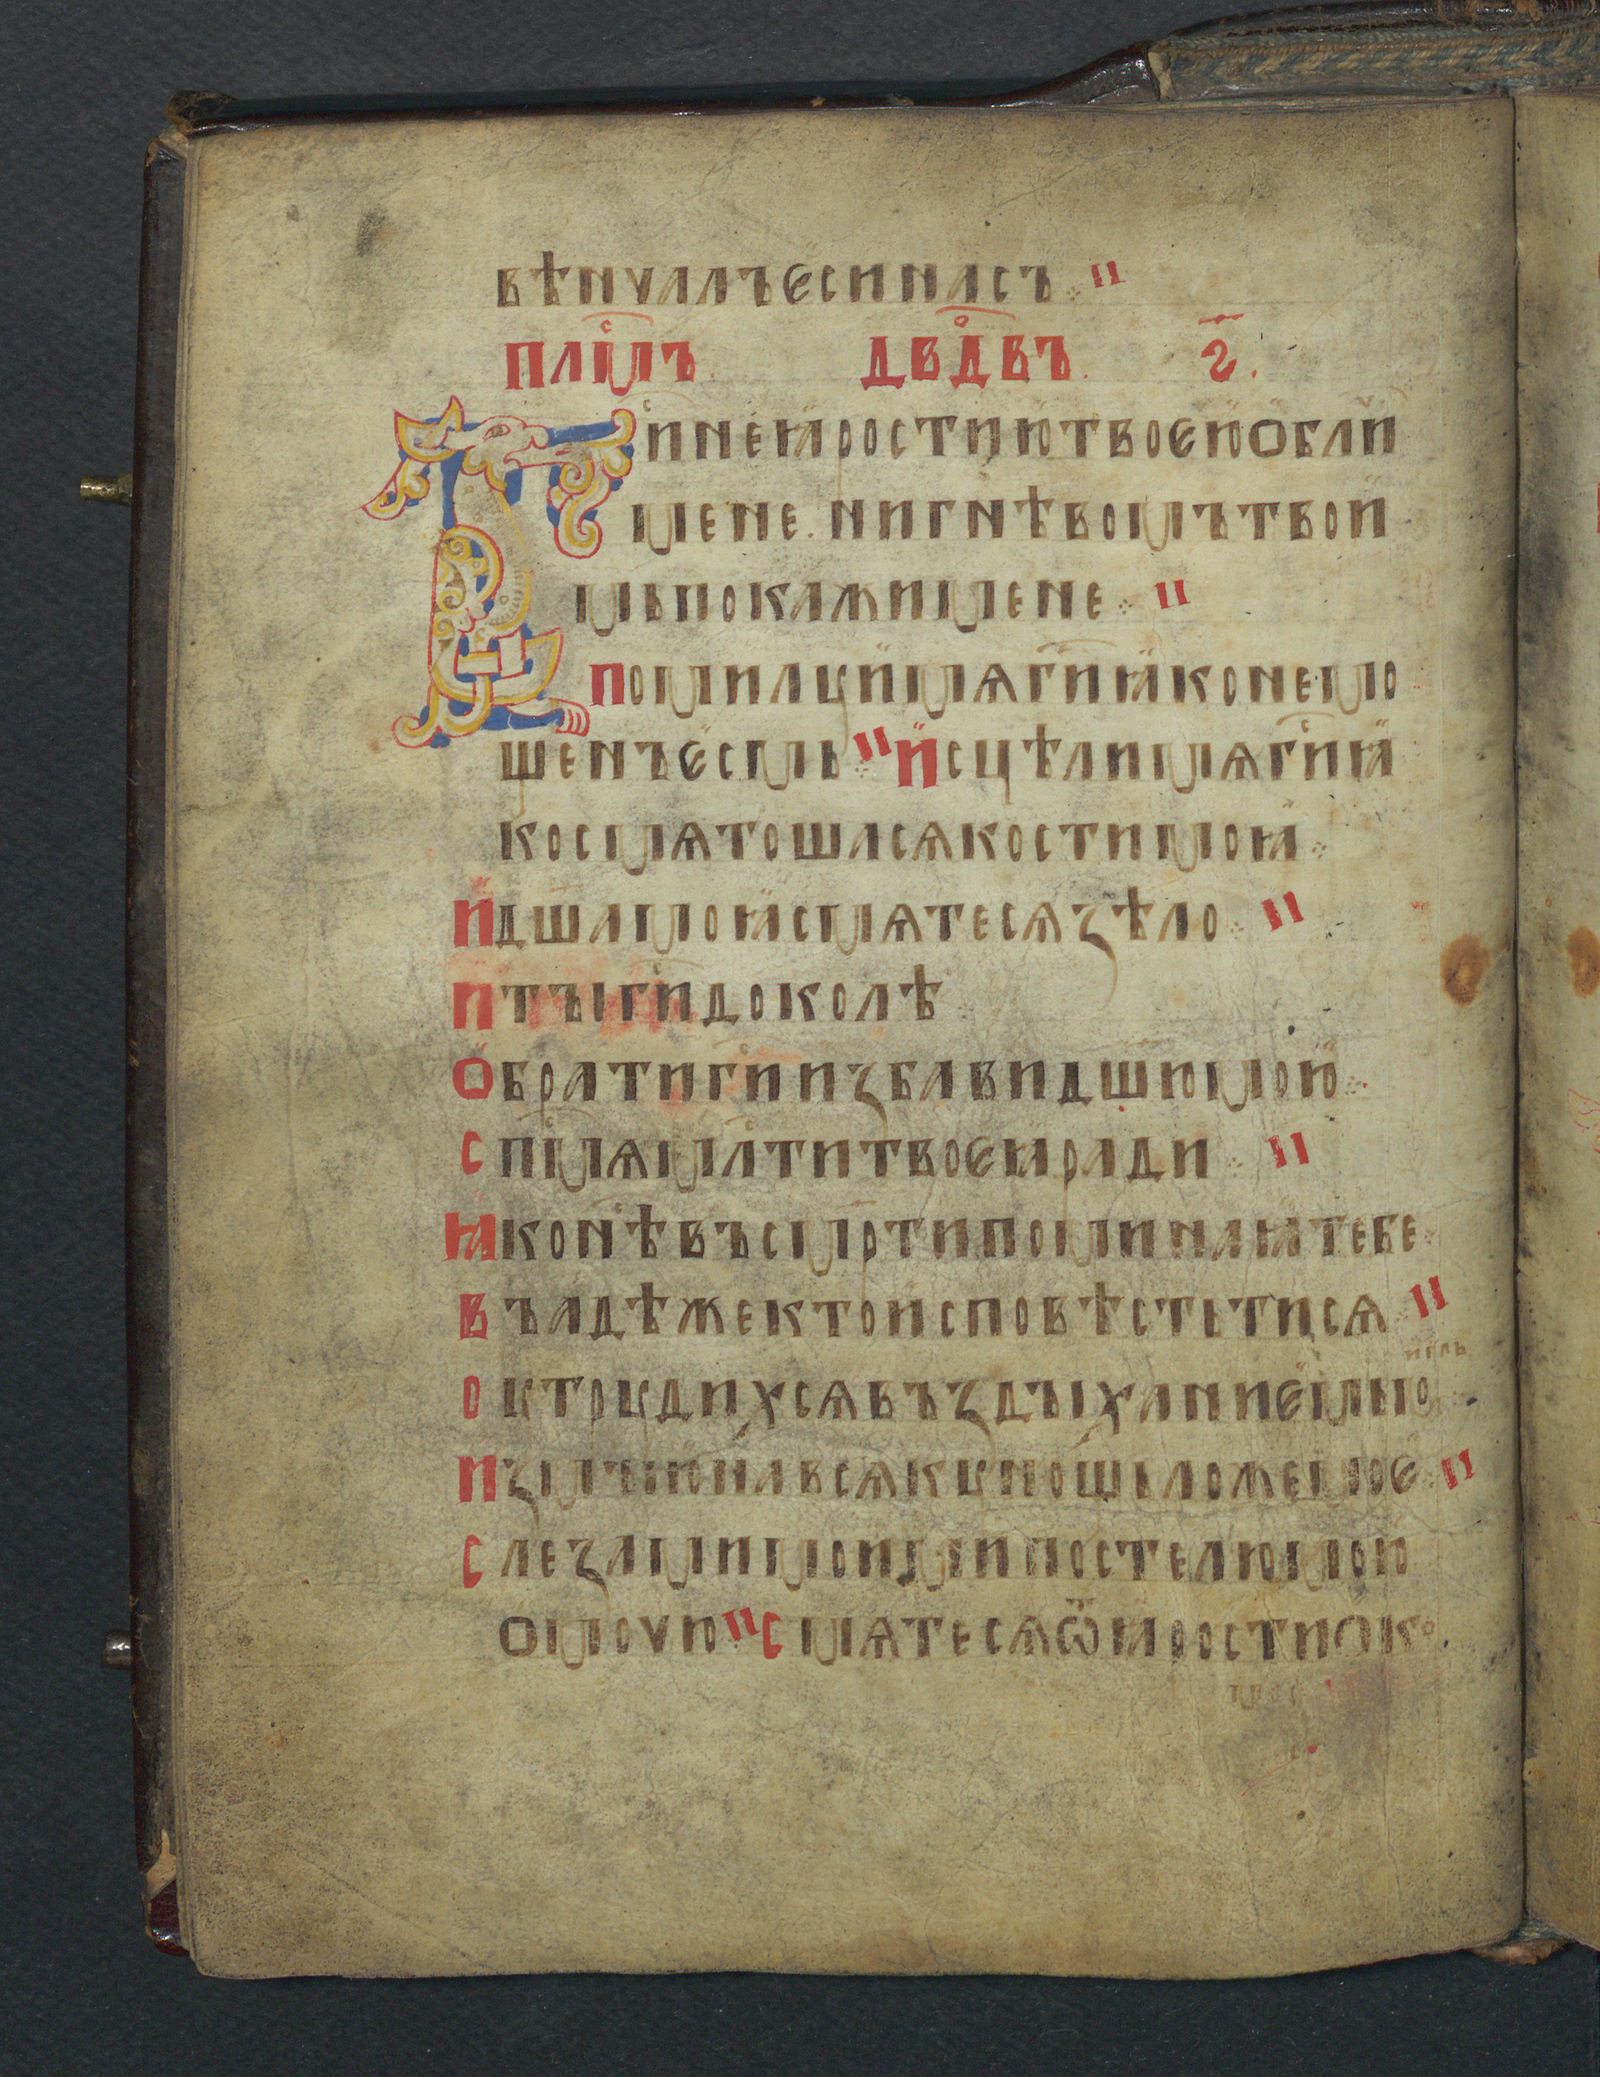 вѣнчалъѥсинасъ ⁘ 〃
п҃лмⷭ҇ъ дв҃двⷪ҇ъ ꙅ҃.
Г҃инеꙗростиютвоѥюобли
мене. нигнѣвомътвои
мьпокажимене ⁘ 〃
помилꙋимѧг҃иꙗконемо
щенъѥсмь ⁘ 〃 исцѣлимѧг҃иꙗ
космѧтошасѧкостимоꙗ ⁘
идш҃амоꙗсмѧтесѧзѣло ⁘ 〃
итъıг҃идоколѣ
обратиг҃иизбавидш҃юмою ⁘
сп҃имѧмл҃титвоѥꙗради ⁘ 〃
ꙗконѣвъсм҃ртипоминаꙗтебе ⁘
въадѣжектоисповѣстьтисѧ 〃
ꙋтрꙋдихсѧвъздъıханиѥмьмо
имь
измъıюнавсѧкꙋнощьложемоѥ ⁘ 〃
слезамимоимипостелюмою
омочю 〃 смѧтесѧѿꙗростиок